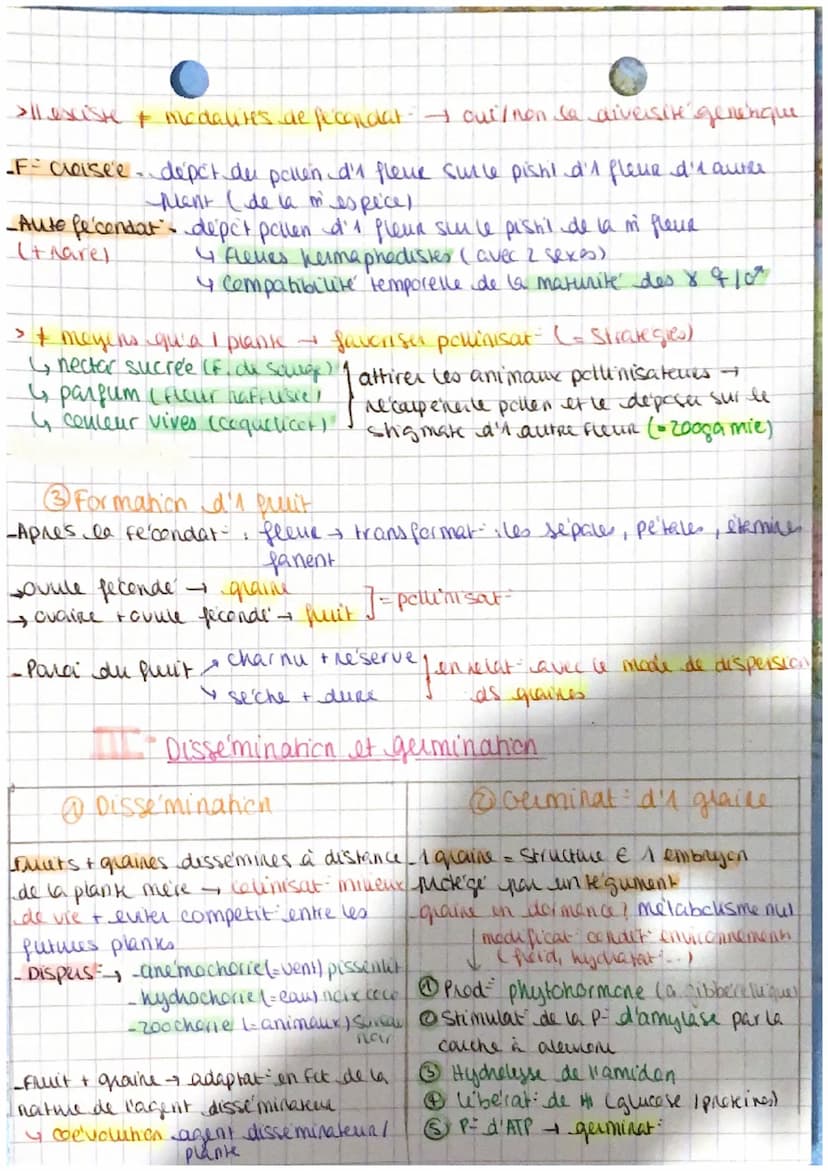 >Il existe ≠ modalités de fécondat° → oui/non la diversité génétique
-F° croisée - dépôt du pollen d'1 fleur sur le pistil d'1 fleur d'1 autre
plant (de la m̂ espèce)
-Auto fécondat° - dépôt pollen d'1 fleur sur le pistil de la m̂ fleur
(+ rare)
↳ fleurs hermaphodistes (avec 2 sexes)
↳ Compatibilité temporelle de la maturité des γ ♀/♂
> ≠ moyens qu'a 1 plante → favoriser pollinisat° (= Stratégies)
↳ nectar sucrée (f. de sauge)
↳ parfum (fleur
↳ couleur vives (coquelicot)
} attirer les animaux pollinisateurs →
récupérer le pollen et le déposer sur le
stigmate d'1 autre fleur (=zoogamie)
③ Formation d'1 fruit
-Après la fécondat° : fleur → transformat° : les sépales, pétales, étamines
fanent
→ovule fécondé → graine
→ ovaire + ovule fécondé → fruit
] = pollinisat°
-Paroi du fruit ↗ charnu + réserve
↘ sèche + dure
} en relat° avec le mode de dispersion
ds graines
III - Dissémination et germination
① Dissémination
Fruits + graines disséminés à distance
de la plante mère → colonisat° milieux
de vie + éviter competit° entre les
futures plantes
- Dispers° → -anémochorie (=vent) pissenlit
-hydrochorie (=eau) noix coco
-zoochorie (=animaux) Sureau
noir
-Fruit + graine → adaptat° en fct de la
nature de l'agent disséminateur
↳ coévolution agent disséminateur/
plante
② Germinat° d'1 graine
-1 graine = structure € 1 embryon
protégé par un tégument
-graine en dormance : métabolisme nul
↓ modificat° condit° environnement
(froid, hydratat°...)
① Prod° phytohormone (a. gibbérélique)
② Stimulat° de la P° d'amylase par la
couche à aleurone
③ Hydrolyse de l'amidon
④ Libérat° de (glucose / protéines)
⑤ P° d'ATP → germinat°